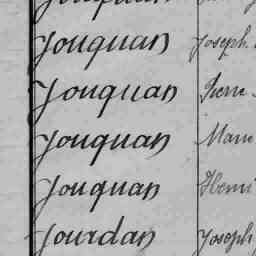 Jouquan Joseph
Jouquan Pierre
Jouquan Marie
Jouquan Henri
Jourdan Joseph